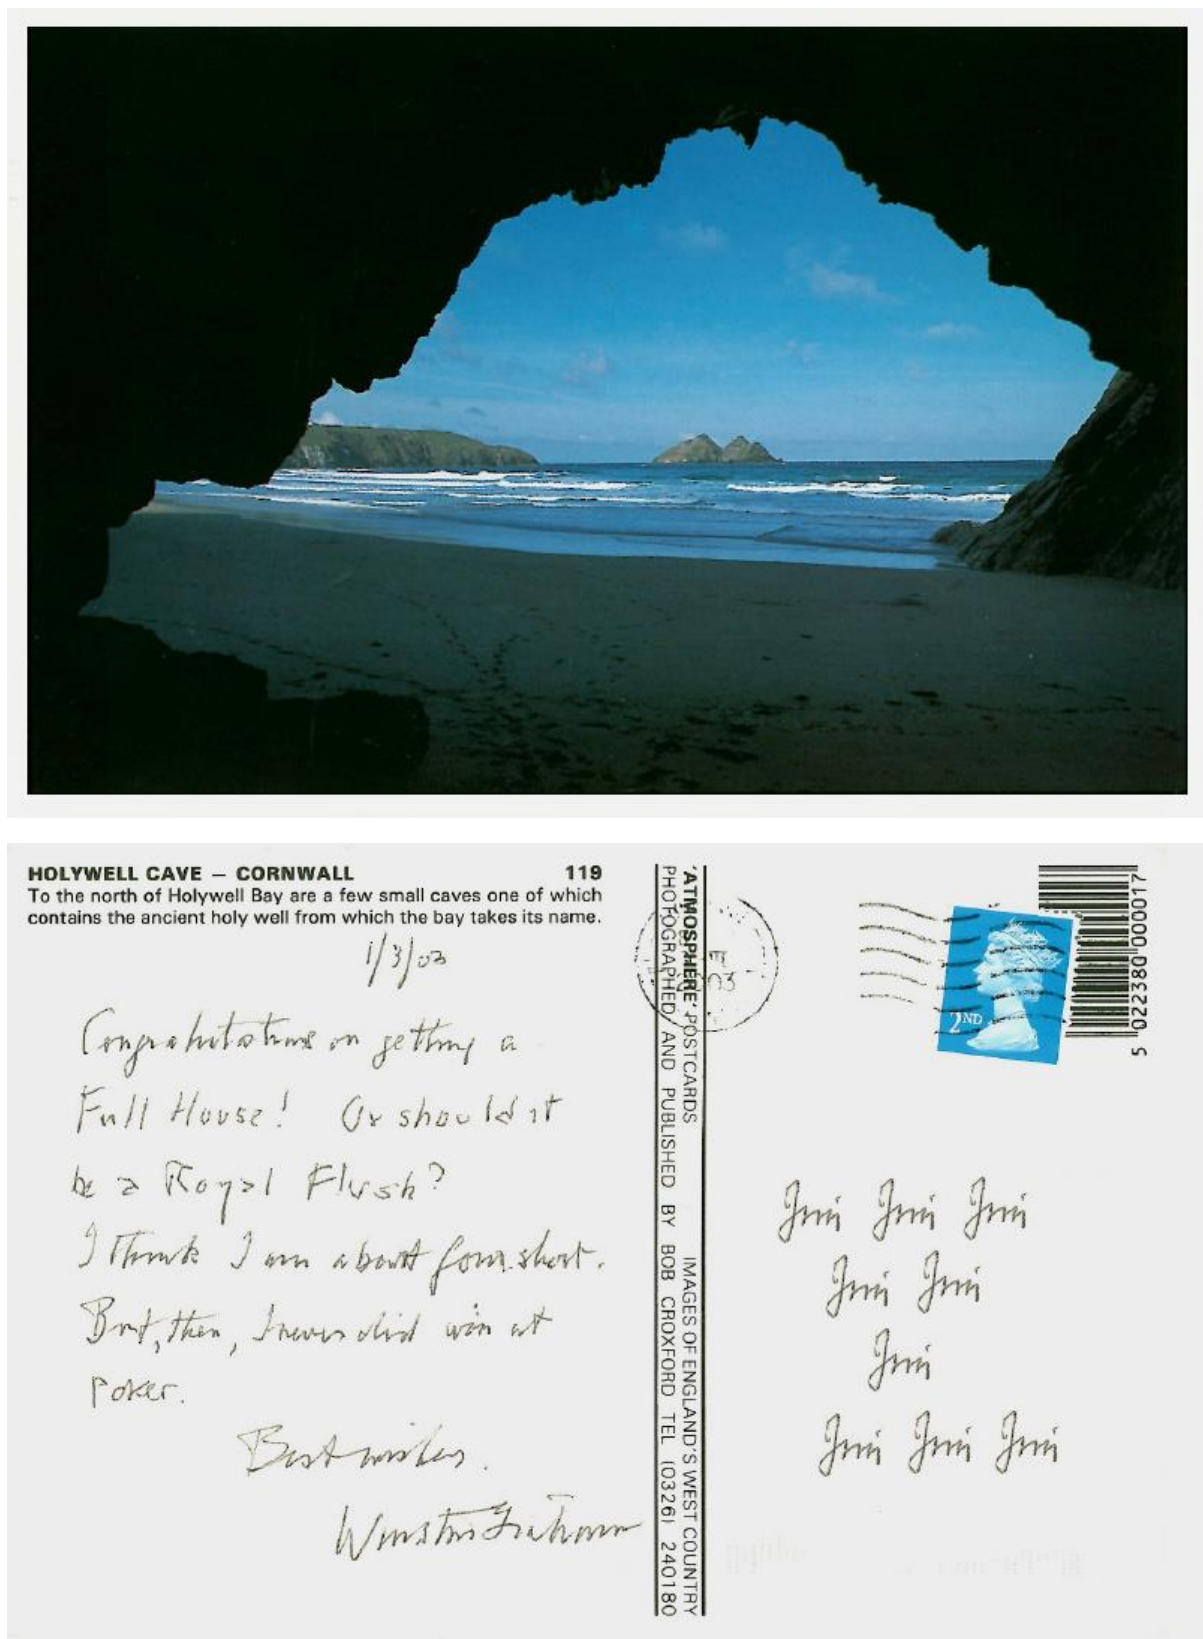 HOLYWELL CAVE – CORNWALL 119
To the north of Holywell Bay are a few small caves one of which
contains the ancient holy well from which the bay takes its name.
1/3/03
Congratulations on getting a
Full House! Or should it
be a Royal Flush?
I think I am about four short.
But, then, I never did win at
Poker.
Best wishes.
Winston Graham
'ATMOSPHERE' POSTCARDS IMAGES OF ENGLAND'S WEST COUNTRY
PHOTOGRAPHED AND PUBLISHED BY BOB CROXFORD TEL (0326) 240180
2003
2ND
5 022380 000017
Jini Jini Jini
Jini Jini
Jini
Jini Jini Jini